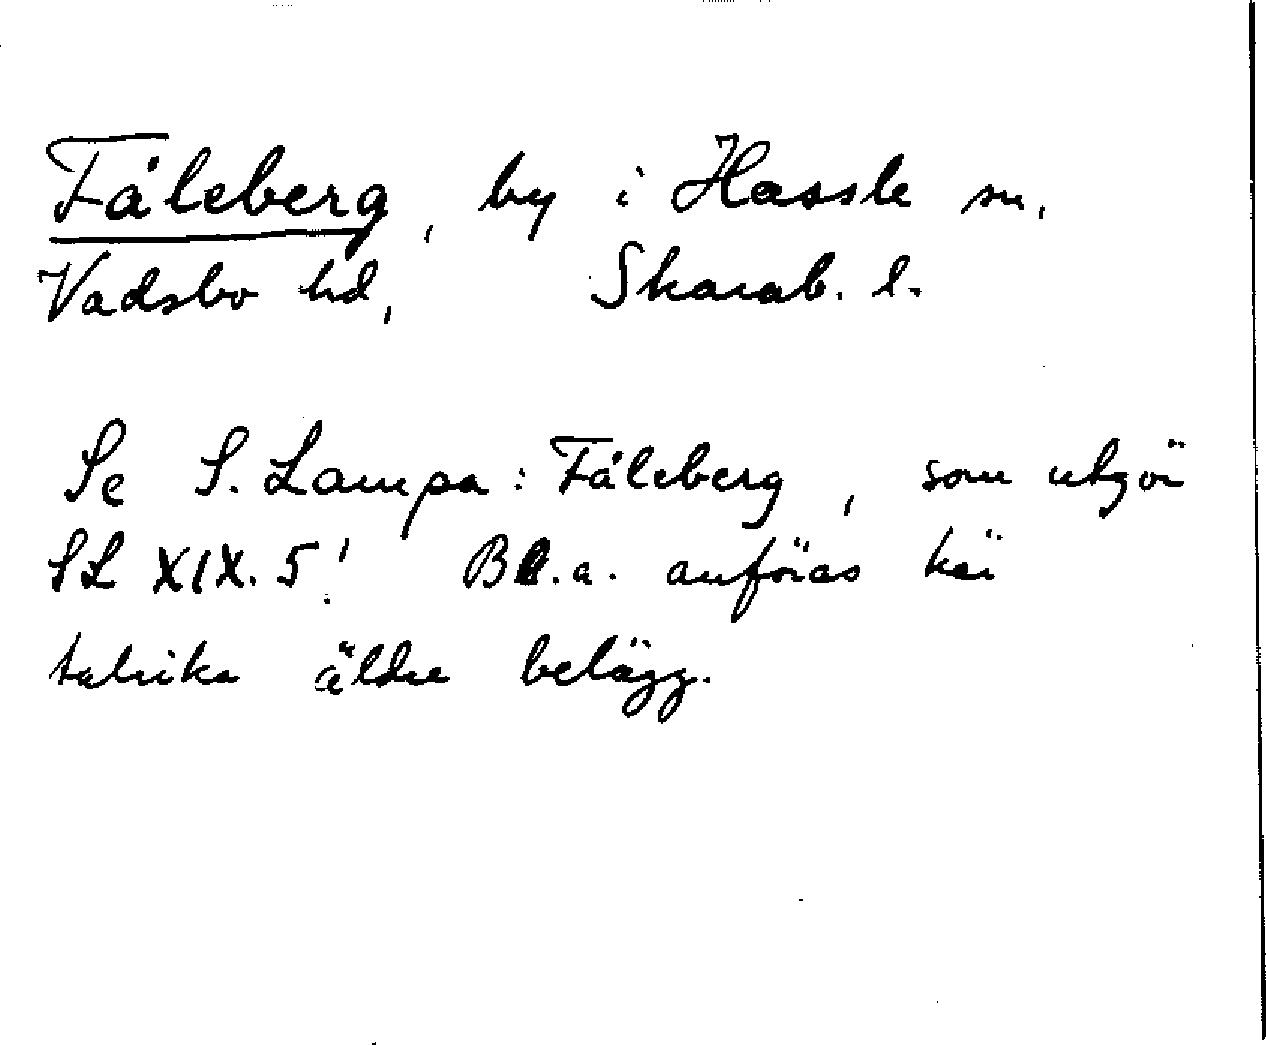 Fåleberg, by i Hassle sn,
Vadsbo hd, Skarab. l.
Se S. Lampa: Fåleberg, som utgör
SL XIX. 5! Bl.a. anföras här
talrika äldre belägg.